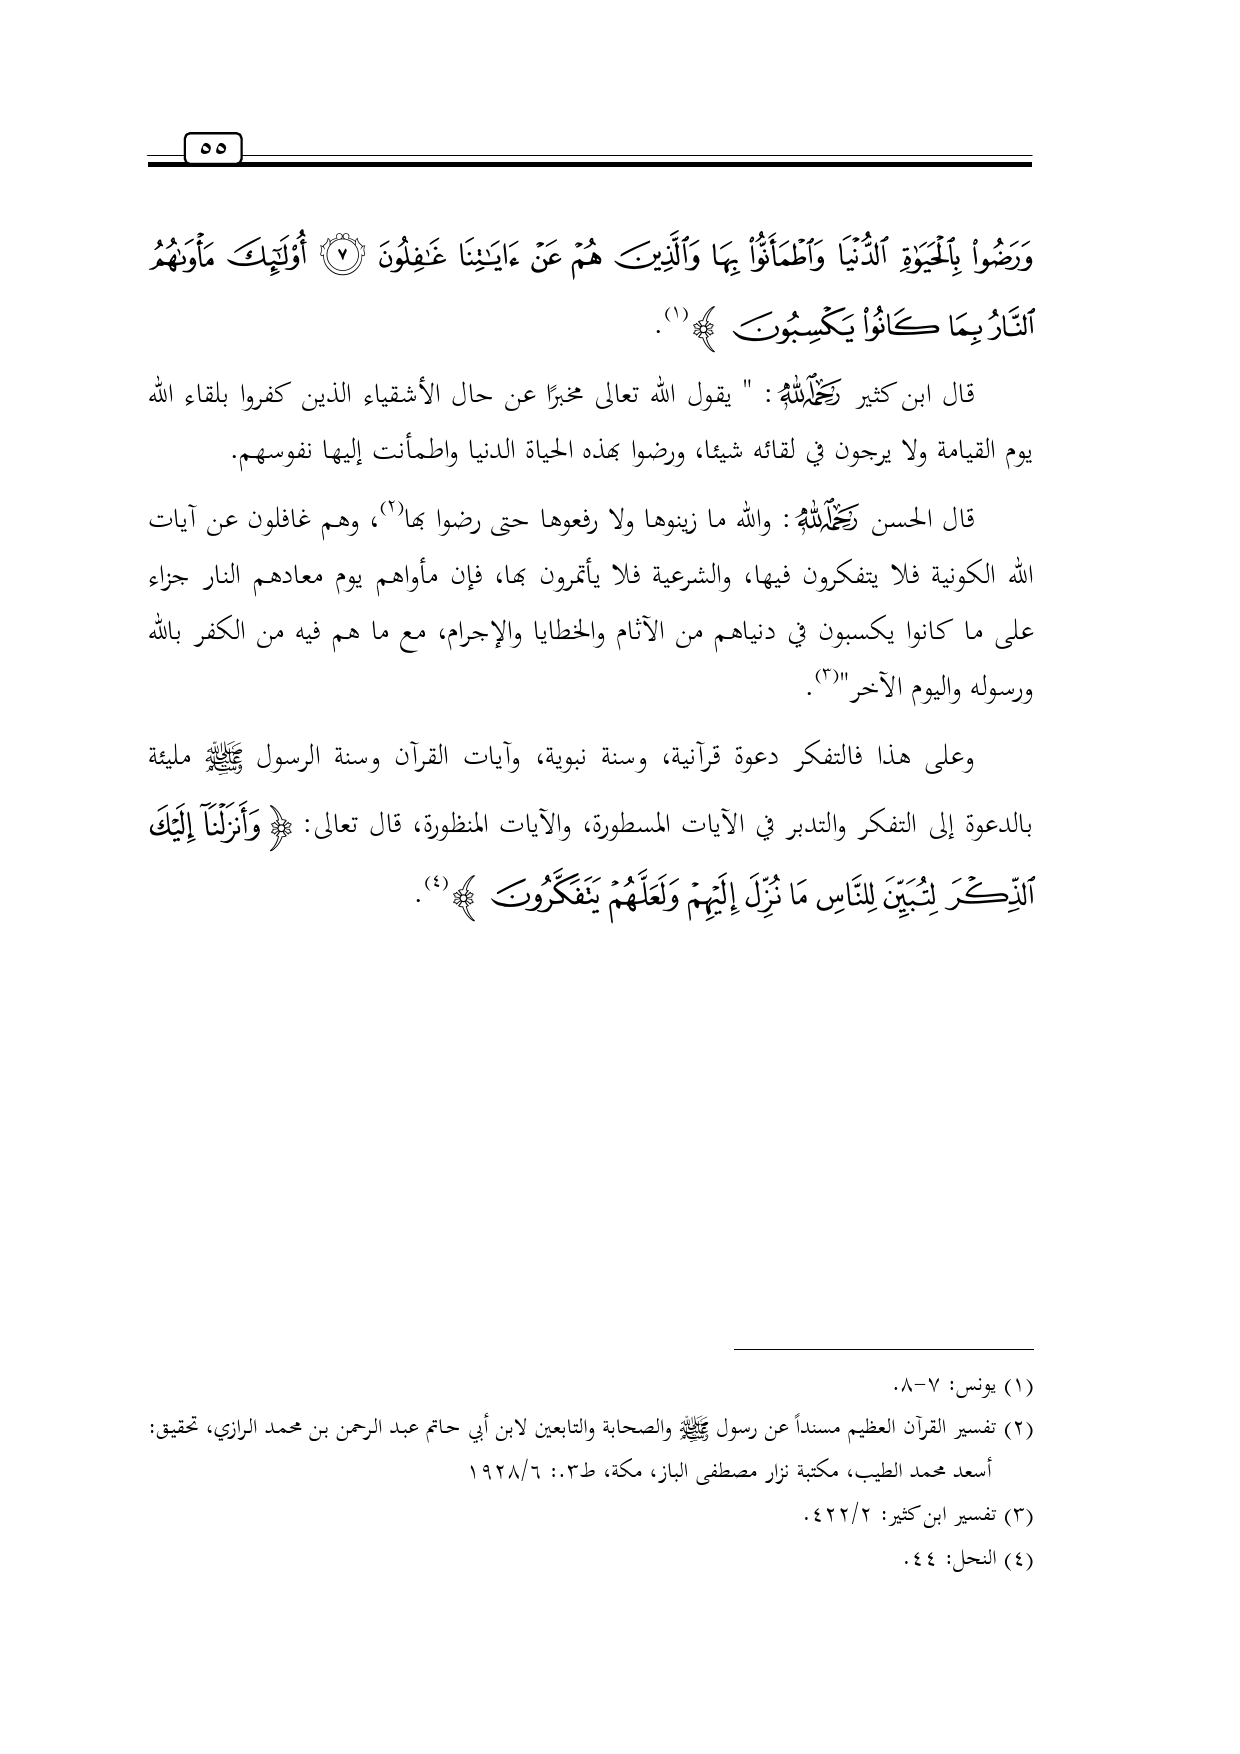 ٥٥
وَرَضُوا۟ بِٱلْحَيَوٰةِ ٱلدُّنْيَا وَٱطْمَأَنُّوا۟ بِهَا وَٱلَّذِينَ هُمْ عَنْ ءَايَـٰتِنَا غَـٰفِلُونَ ٧ أُو۟لَـٰٓئِكَ مَأْوَىٰهُمُ
ٱلنَّارُ بِمَا كَانُوا۟ يَكْسِبُونَ ﴾(١).
قال ابن كثير رَحِمَهُ ٱللَّهُ: " يقول الله تعالى مخبرًا عن حال الأشقياء الذين كفروا بلقاء الله
يوم القيامة ولا يرجون في لقائه شيئا، ورضوا بهذه الحياة الدنيا واطمأنت إليها نفوسهم.
قال الحسن رَحِمَهُ ٱللَّهُ: والله ما زينوها ولا رفعوها حتى رضوا بها(٢)، وهم غافلون عن آيات
الله الكونية فلا يتفكرون فيها، والشرعية فلا يأتمرون بها، فإن مأواهم يوم معادهم النار جزاء
على ما كانوا يكسبون في دنياهم من الآثام والخطايا والإجرام، مع ما هم فيه من الكفر بالله
ورسوله واليوم الآخر"(٣).
وعلى هذا فالتفكر دعوة قرآنية، وسنة نبوية، وآيات القرآن وسنة الرسول ﷺ مليئة
بالدعوة إلى التفكر والتدبر في الآيات المسطورة، والآيات المنظورة، قال تعالى: ﴿ وَأَنزَلْنَآ إِلَيْكَ
ٱلذِّكْرَ لِتُبَيِّنَ لِلنَّاسِ مَا نُزِّلَ إِلَيْهِمْ وَلَعَلَّهُمْ يَتَفَكَّرُونَ ﴾(٤).
(١) يونس: ٧-٨.
(٢) تفسير القرآن العظيم مسنداً عن رسول ﷺ والصحابة والتابعين لابن أبي حاتم عبد الرحمن بن محمد الرازي، تحقيق:
أسعد محمد الطيب، مكتبة نزار مصطفى الباز، مكة، ط٣.: ١٩٢٨/٦
(٣) تفسير ابن كثير: ٤٢٢/٢.
(٤) النحل: ٤٤.